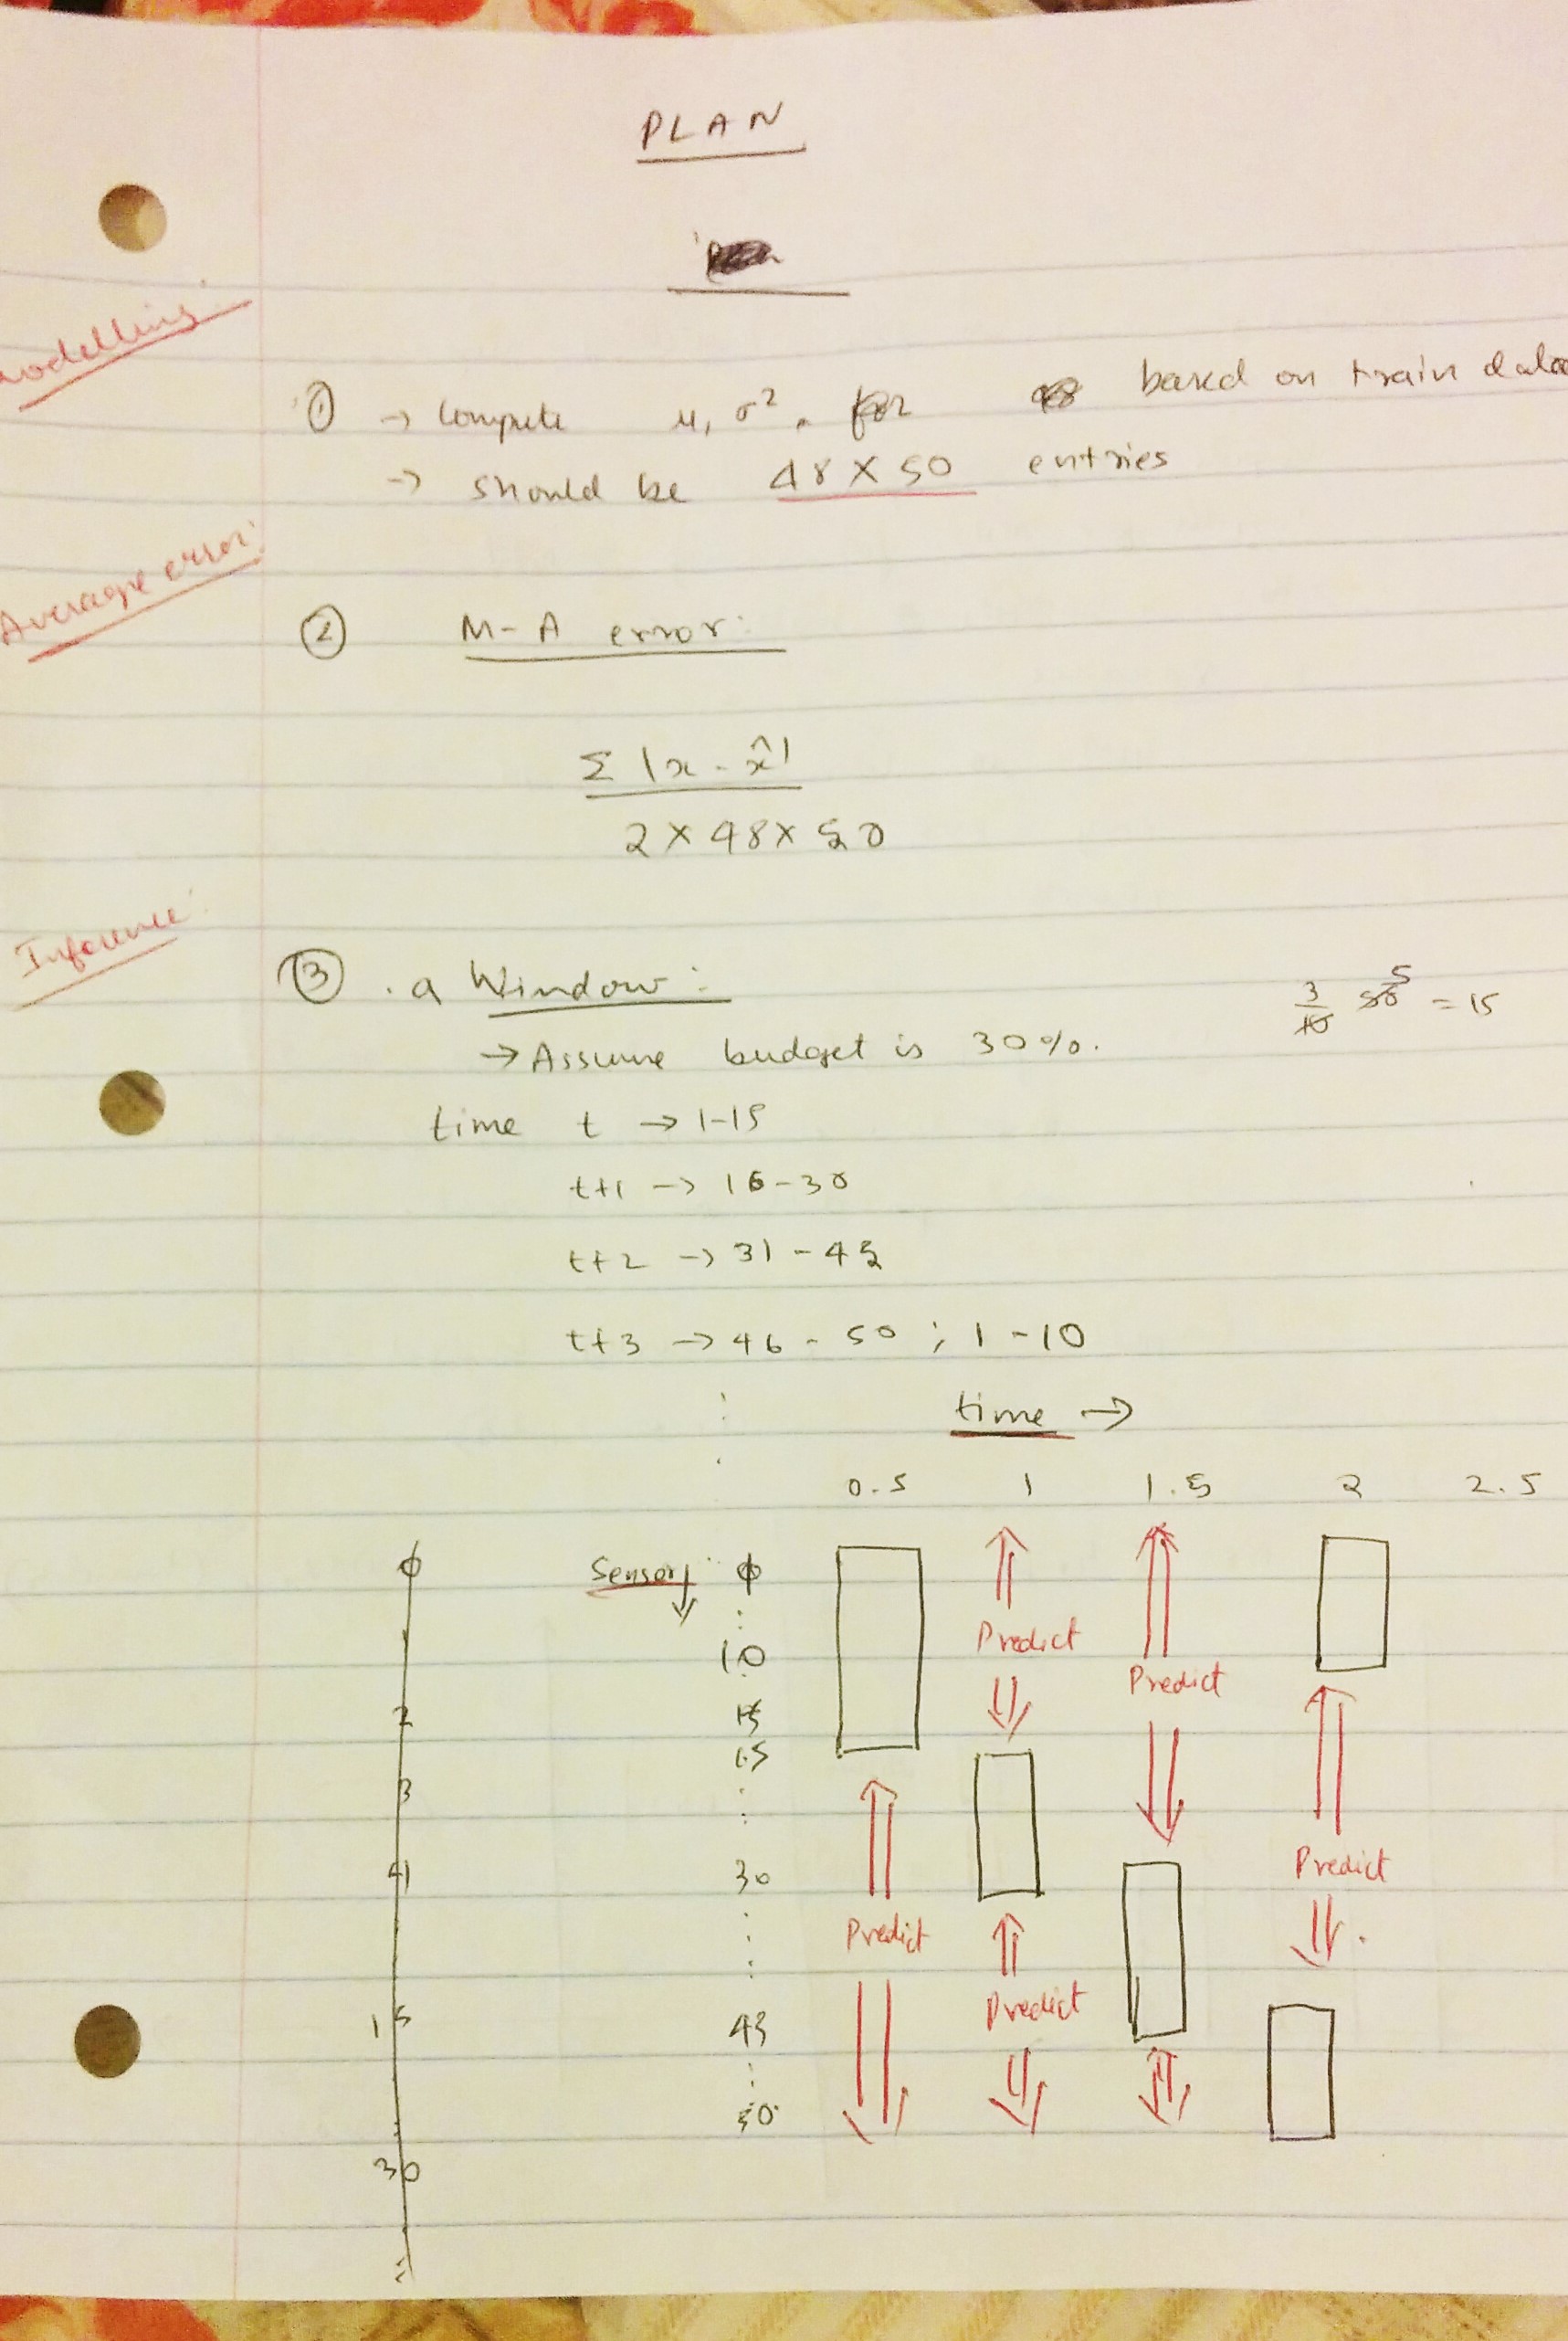 PLAN
Modelling:
① → Compute μ, σ². for based on train data
→ should be 48 X 50 entries
Average error:
② M-A error:
Σ |x - x̂|
2 X 48 X 50
Inference:
③ . a Window:
3/10 50 5 = 15
→ Assume budget is 30%.
time t → 1-15
t+1 → 16-30
t+2 → 31-45
t+3 → 46 - 50 ; 1-10
time →
0.5 1 1.5 2 2.5
Sensor ↓
φ φ
1 10
2 15
15
3
4 30
15 45
50
30
Predict
Predict
Predict
Predict
Predict